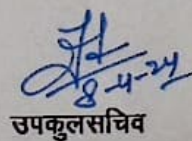 8-4-24
उपकुलसचिव